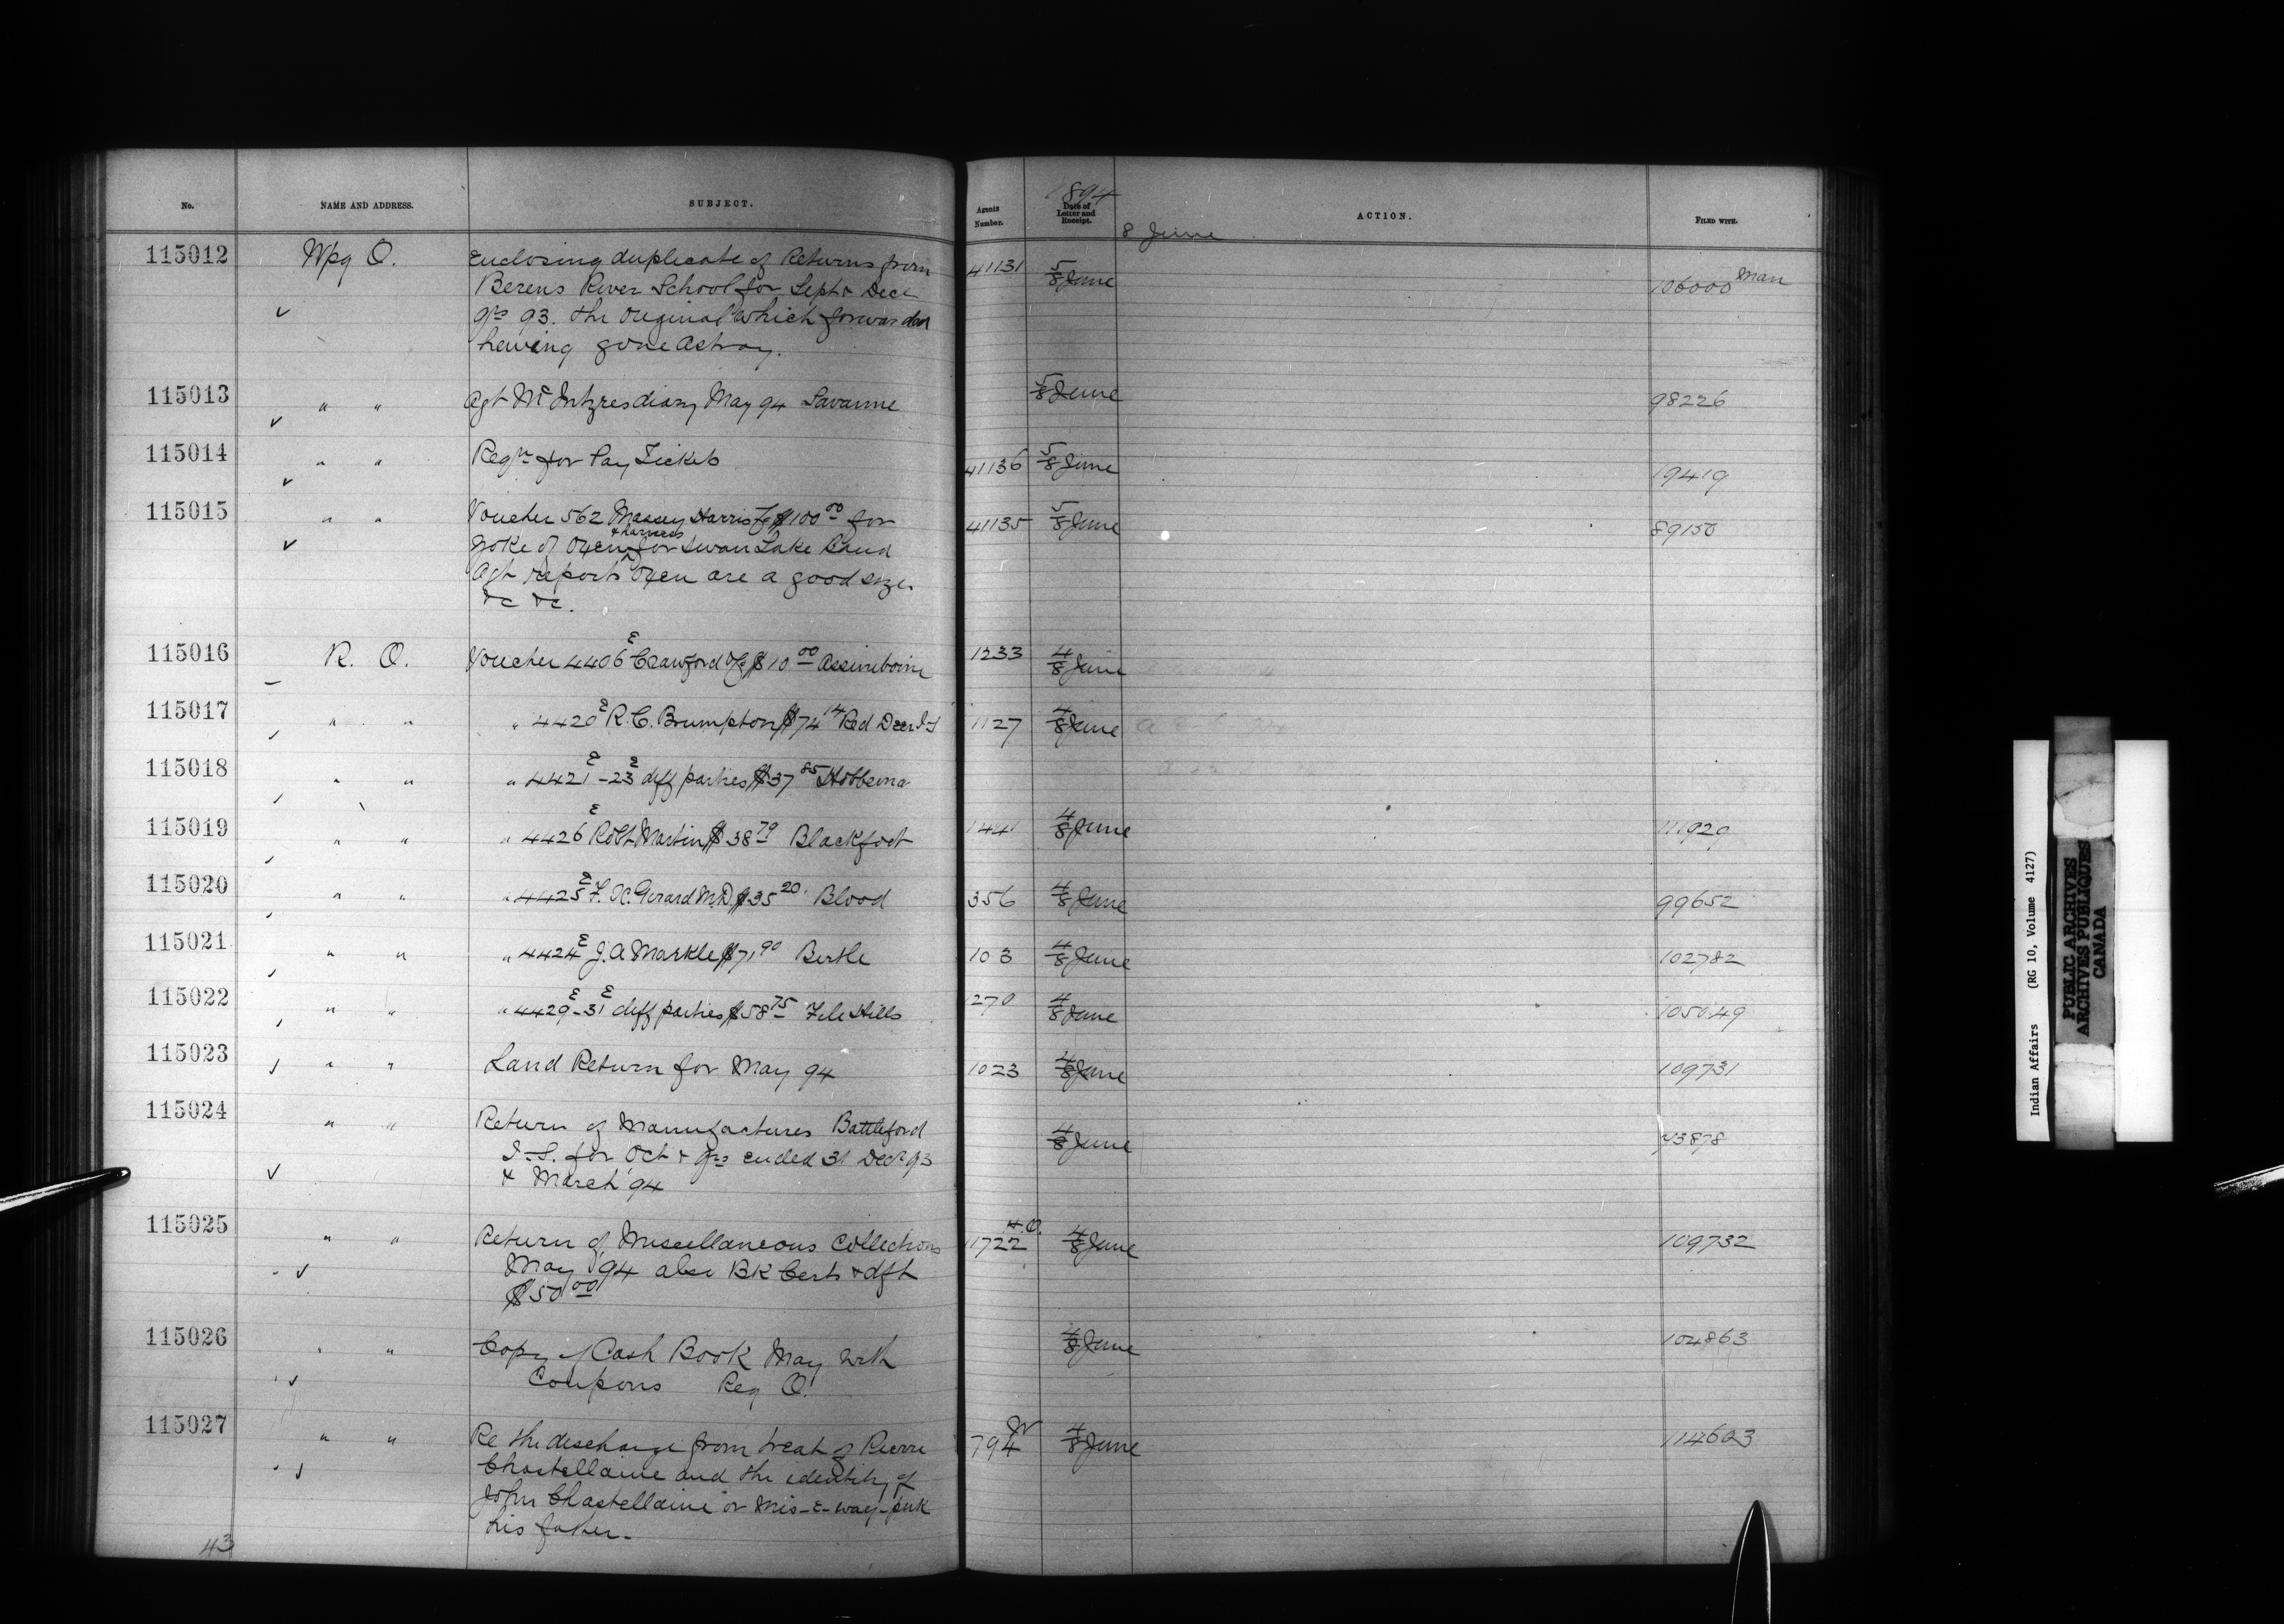 No. NAME AND ADDRESS. SUBJECT. Agents Number. 1894 Date of Letter and Receipt. ACTION. FILED WITH.
8 June
115012 Wpg O. Enclosing duplicate of Returns from 41131 5/8 June 106000 Man
Berens River School for Sept & Dec
qrs 93. the Original which forwarded
having gone astray.
115013 " " Agt McIntyres diary May 94 Savanne 5/8 June 98226
115014 " " Reqn for Pay Tickets 41136 5/8 June 19419
115015 " " Voucher 562 Massey Harris Co $100 00 for 41135 5/8 June 89150
yoke of Oxen & harness for Swan Lake Band
Agt reports Oxen are a good size
&c &c.
115016 R. O. Voucher 4406 E Crawford $10 00 Assiniboine 1233 4/8 June
115017 " " " 4420 E R. C. Brumpton $74 14 Red Deer I-S 1127 4/8 June
115018 " " " 4421 E - 23 E diff parties $37 85 Hobbema
115019 " " " 4426 E Robt Martin $38 79 Blackfoot 1441 4/8 June 111929
115020 " " " 4425 E F. X. Girard M.D. $35 20 Blood 356 4/8 June 99652
115021 " " " 4424 E J. A Markle $71 90 Birtle 103 4/8 June 102782
115022 " " " 4429 E - 31 E diff parties $58 75 File Hills 1270 4/8 June 105049
115023 " " Land Return for May 94 1023 4/8 June 109731
115024 " " Return of Manufactures Battleford 4/8 June 43878
I-S. for Oct & qrs ended 31 Decr 93
& March 94
115025 " " Return of Miscellaneous Collections H.O. 11722 4/8 June 109732
May 94 also BK Certs & dft
$50 00
115026 " " Copy of Cash Book May with 4/8 June 104863
Coupons Reg O.
115027 " " Re the discharge from treaty of Pierre 794 W 4/8 June 114603
Chastellaine and the identity of
John Chastellaine or Mis-E-way-puk
his father.
43
Indian Affairs (RG 10, Volume 4127)
PUBLIC ARCHIVES
ARCHIVES PUBLIQUES
CANADA